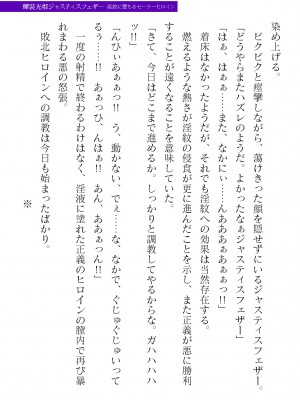 輝装光姫ジャスティスフェザー 淫紋に堕ちるセーラーヒロイン
染め上げる。
ビクビクと痙攣しながら、蕩けきった顔を隠せずにいるジャスティスフェザー。
「どうやらまたハズレのようだ。よかったなぁジャスティスフェザー」
「はぁ、はぁぁ……また、なかにぃ……んあああぁあぁぁっ!!」
着床はなかったようだが、それでも淫紋への効果は当然存在する。
燃えるような熱さが淫紋の侵食が更に進んだことを示し、また正義が悪に勝利
することが遠くなったことを意味していた。
「さて、今日はどこまで進めるか。しっかりと調教してやるからな。ガハハハハ
ッ!!」
「んひぃあぁぁっ!!　う、動かない、でぇ……な、なかで、ぐじゅぐじゅいって
るぅ……!!　あぁっひ、んはぁぁ!!　あん、ああぁっん!!」
一度の射精で終わるわけはなく、淫液に塗れた正義のヒロインの膣内で再び暴
れまわる悪の怒張。
敗北ヒロインへの調教は今日も始まったばかり。
※